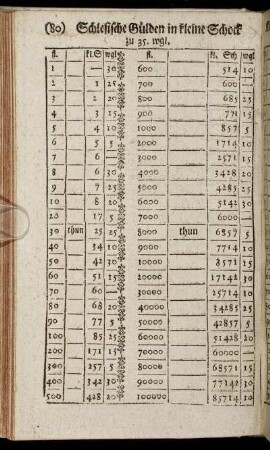 (80) Schlesische Gülden in kleine Schock
zu 35. wgl.
fl. kl.S wgl fl. kl. Sch wgl
1 — 30 600 514 10
2 1 25 700 600 —
3 2 20 800 685 25
4 3 15 900 771 15
5 4 10 1000 857 5
6 5 5 2000 1714 10
7 6 — 3000 2571 15
8 6 30 4000 3428 20
9 7 25 5000 4285 25
10 8 20 6000 5142 30
20 17 5 7000 6000 —
30 thun 25 25 8000 thun 6857 5
40 34 10 9000 7714 10
50 42 30 10000 8571 15
60 51 15 20000 17142 30
70 60 — 30000 25714 10
80 68 20 40000 34285 25
90 77 5 50000 42857 5
100 85 25 60000 51428 20
200 171 15 70000 60000 —
300 257 5 80000 68571 15
400 342 30 90000 77142 30
500 428 20 100000 85714 10